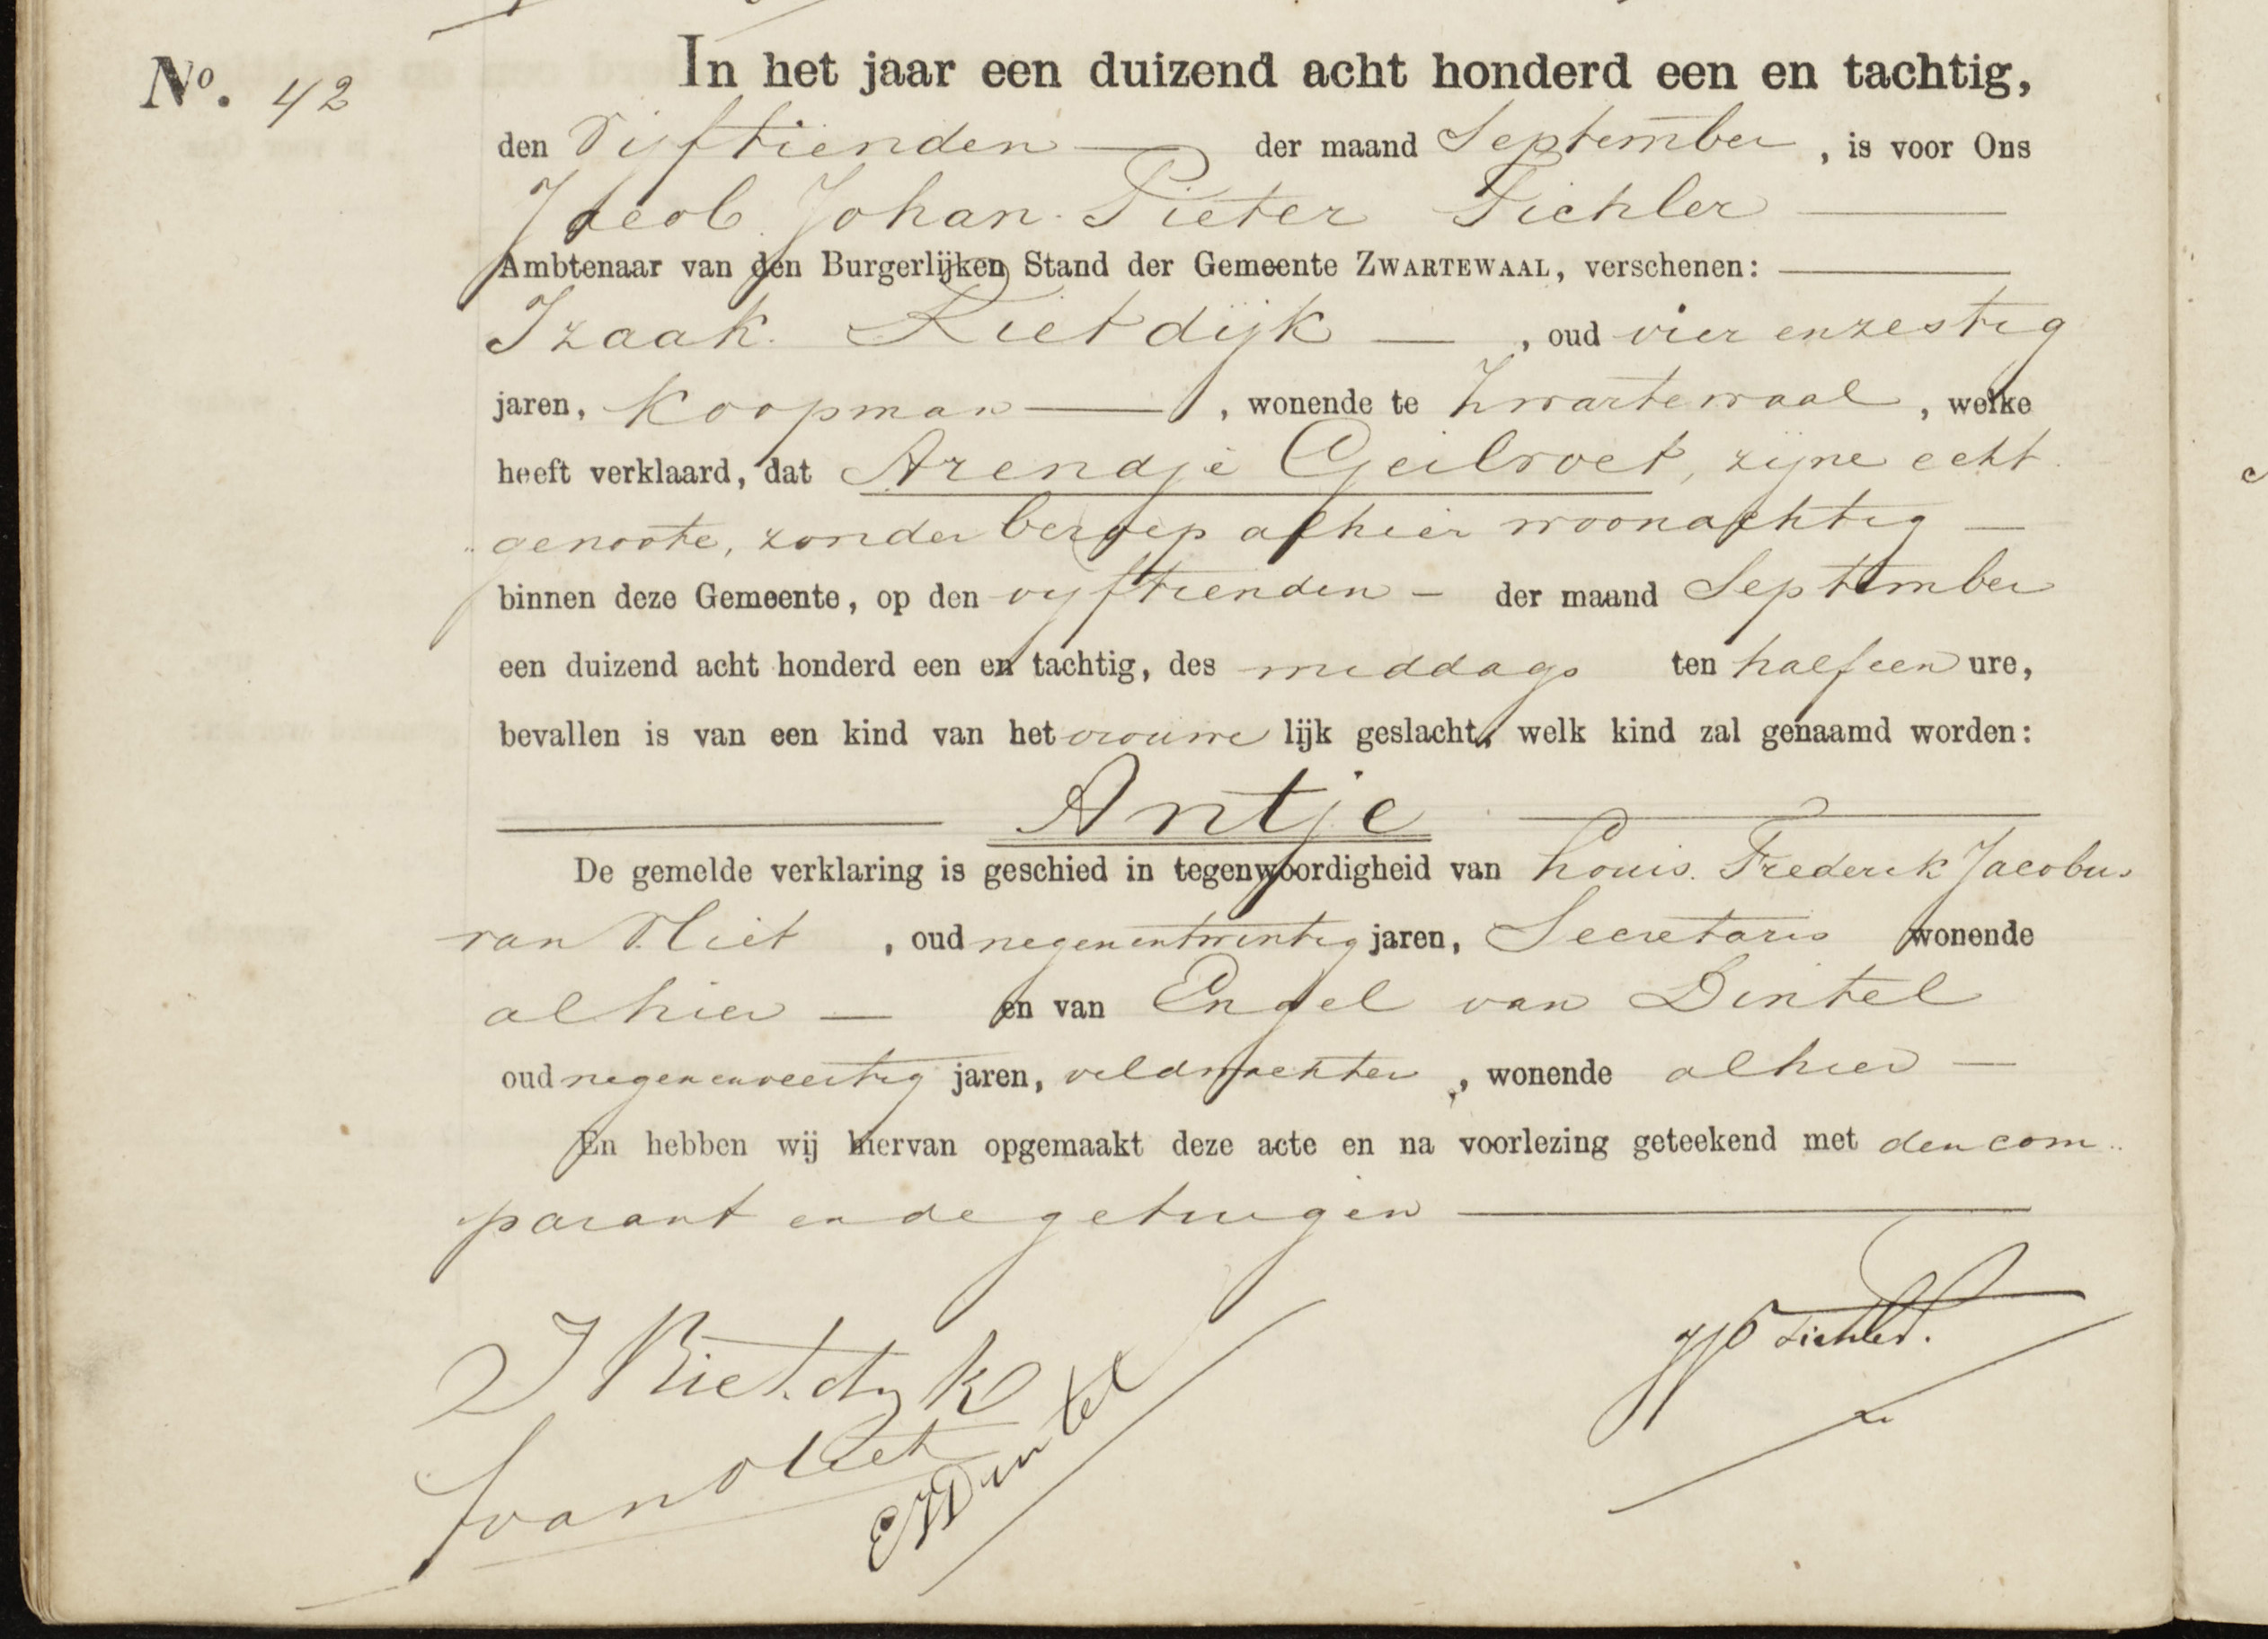 No. 42
In het jaar een duizend acht honderd een en tachtig,
den Vijftienden — der maand September, is voor Ons
Jacob Johan Pieter Tichler —
Ambtenaar van den Burgerlijken Stand der Gemeente ZWARTEWAAL, verschenen: —
Izaak Rietdijk —, oud vier en zestig
jaren, Koopman —, wonende te Zwartewaal, welke
heeft verklaard, dat Arendje Geilvoet, zijne echt
genoote, zonder beroep alhier woonachtig —
binnen deze Gemeente, op den vijftienden — der maand September
een duizend acht honderd een en tachtig, des middags ten half een ure,
bevallen is van een kind van het vrouwelijk geslacht, welk kind zal genaamd worden:
— Antje —
De gemelde verklaring is geschied in tegenwoordigheid van Louis Frederik Jacobus
van Vliet, oud negenentwintig jaren, Secretaris wonende
alhier — en van Engel van Dintel
oud negenenveertig jaren, veldwachter, wonende alhier —
En hebben wij hiervan opgemaakt deze acte en na voorlezing geteekend met den com
parant en de getuigen —
J Rietdyk
JJP Tichler.
van Vliet
EvDintel